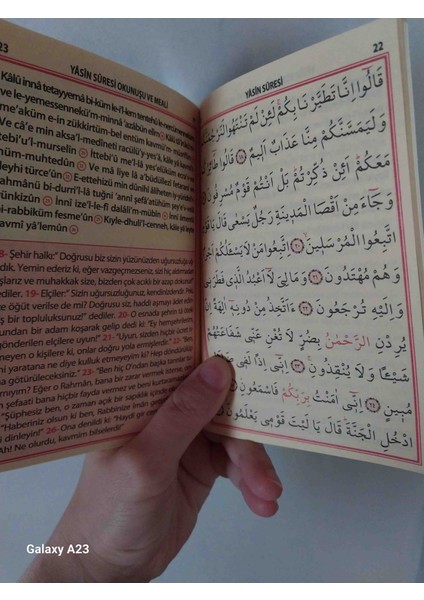 23
YÂSÎN SÛRESİ OKUNUŞU VE MEALİ
Kâlû innâ tetayyernâ bi-küm le-il-lem tentehû le-nercümenneküm
ve le-yemessenneküm-minnâ azâbün elîm
me'aküm e-in zükkirtüm bel entüm kavmü-m-müsrifûn
Ve câ'e min aksa'l-medîneti racülü-y-yes'â, kâle yâ kavmi-
ttebi'u'l-murselîn ttebi'û me'l-lâ yes'elüküm
muhtedûn Ve mâ liye lâ a'büdüllezî fetaranî ve
ileyhi türce'ûn E-ettehizü min dûnihî âliheten iy-yüridni'r-
rahmânü bi-durri'l-lâ tuğni 'annî şefâ'atühüm şey'e-v-ve
yunkizûn İnnî ize'l-le-fî dalâli'm-mübîn İnnî âmentü
bi-rabbiküm fesme'ûn Kıyle-dhuli'l-cenneh, kâle yâ leyte
kavmî ya'lemûn
18- Şehir halkı: "Doğrusu biz sizin yüzünüzden uğursuzluğa uğradık. Yemin ederiz ki, eğer vazgeçmezseniz, sizi
taşlarız ve muhakkak size, bizden çok acıklı bir azap dokunur"
dediler. 19- Elçiler:" Sizin uğursuzluğunuz, kendinizdendir.
Size öğüt verilse de mi? Doğrusu siz, haddi aşmış
bir topluluksunuz!" dediler. 20- O esnada şehrin öbür
ucundan bir adam koşarak gelip dedi ki: "Ey hemşehrilerim
gönderilen elçilere uyun!" 21- "Uyun, sizden hiçbir ücret
istemeyen o kişilere ki, onlar doğru yola ermişlerdir." 22- "Ben,
beni yaratana ne diye kulluk etmeyeyim ki? Hep
O'na götürüleceksiniz." 23- "Ben hiç O'ndan başka tanrılar
edinir miyim? Eğer o Rahmân, bana bir zarar vermek istese,
onların şefaati bana hiçbir fayda vermez ve beni kurtaramazlar."
24- "Şüphesiz ben, o zaman açık bir sapıklık içinde
25- "Haberiniz olsun ki ben, Rabbinize îmân
beni dinleyin!" 26- Ona denildi ki: "Haydi gir cennete!"
"Ah! Ne olurdu, kavmim bilselerdi"
22
YÂSÎN SÛRESİ
قَالُوا اِنَّا تَطَيَّرْنَا بِكُمْ لَئِنْ لَمْ تَنْتَهُوا لَنَرْجُمَنَّكُمْ
وَلَيَمَسَّنَّكُمْ مِنَّا عَذَابٌ اَلِيمٌ ﴿١٨﴾ قَالُوا طَائِرُكُمْ
مَعَكُمْ اَئِنْ ذُكِّرْتُمْ بَلْ اَنْتُمْ قَوْمٌ مُسْرِفُونَ ﴿١٩﴾
وَجَاءَ مِنْ اَقْصَا الْمَدِينَةِ رَجُلٌ يَسْعٰى قَالَ يَا قَوْمِ
اتَّبِعُوا الْمُرْسَلِينَ ﴿٢٠﴾ اِتَّبِعُوا مَنْ لَا يَسْـَٔلُكُمْ اَجْرًا
وَهُمْ مُهْتَدُونَ ﴿٢١﴾ وَمَالِىَ لَا اَعْبُدُ الَّذِى فَطَرَنِى
وَاِلَيْهِ تُرْجَعُونَ ﴿٢٢﴾ ءَاَتَّخِذُ مِنْ دُونِهِ اٰلِهَةً اِنْ
يُرِدْنِ الرَّحْمٰنُ بِضُرٍّ لَا تُغْنِ عَنِّى شَفَاعَتُهُمْ
شَيْـًٔا وَلَا يُنْقِذُونِ ﴿٢٣﴾ اِنِّى اِذًا لَفِى ضَلَالٍ
مُبِينٍ ﴿٢٤﴾ اِنِّى اٰمَنْتُ بِرَبِّكُمْ فَاسْمَعُونِ ﴿٢٥﴾ قِيلَ
ادْخُلِ الْجَنَّةَ قَالَ يَا لَيْتَ قَوْمِى يَعْلَمُونَ ﴿٢٦﴾
Galaxy A23